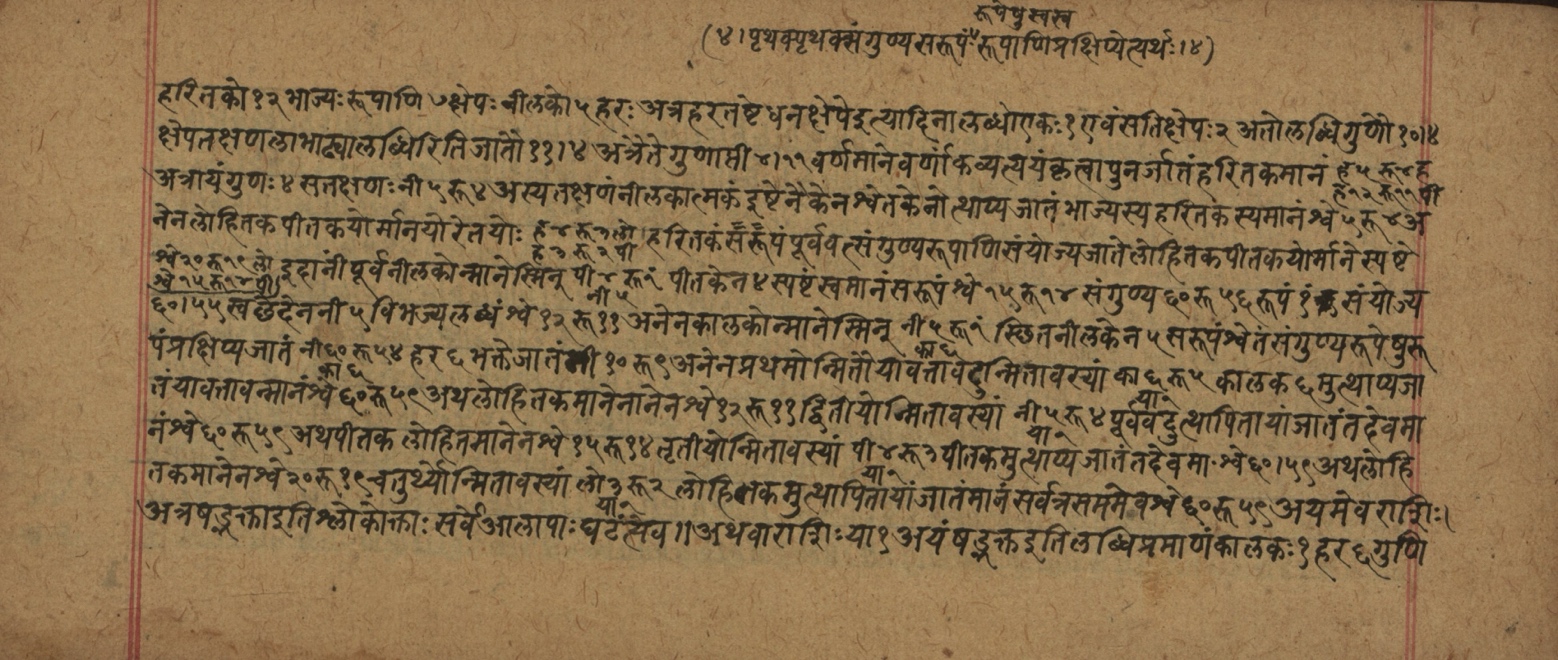 रूपेषु स्वस्व
(४।पृथक्पृथक्संगुण्यसरूपंरूपाणिप्रक्षिप्येत्यर्थः।४)
हरितको१२भाज्यःरूपाणि७क्षेपःनीलको५हरःअत्रहरतष्टेधनक्षेपेइत्यादिनालब्धोएकः१एवंसतिक्षेपः२अतोलब्धिगुणौ१०।४
क्षेपतक्षणलाभाढ्यालब्धिरितिजातौ११।४अत्रैतेगुणाप्ती४।११वर्णमानेवर्णांकव्यत्ययंकृत्वापुनर्जातंहरितकमानं ह५रू४ह
ह१२रू११पी
अत्रायंगुणः४सतक्षणःनी५रू४अस्यतक्षणंनीलकात्मकंइष्टेनैकेनश्वेतकेनोत्थाप्यजातंभाज्यस्यहरितकस्यमानंश्वे५रू४अ
नेनलोहितकपीतकयोर्मानयोरेतयोः ह४रू३लो।हरितकंसरूपंपूर्ववत्संगुण्यरूपाणिसंयोज्यजातेलोहितकपीतकयोर्मानेस्पष्टे
ह३रू२पी
श्वे२०रू१९लो इदानींपूर्वनीलकोन्मानेस्मिन् पी४रू१ पीतकेन४स्पष्टंस्वमानंसरूपंश्वे१५रू१४संगुण्य६०रू५६रूपं१संयोज्य
श्वे१५रू१४पी नी५
६०।५५स्वछेदेननी५विभज्यलब्धंश्वे१२रू११अनेनकालकोन्मानेस्मिन् नी५रू१ स्छितनीलकेन५सरूपंश्वेतंसंगुण्यरूपेषुरू
का६
पंप्रक्षिप्यजातं नी६०रू५४हर६भक्तेजातंनी१०रू९अनेनप्रथमोन्मितौयावत्तावदुन्मितावस्यां का६रू५ कालक६मुत्थाप्यजा
का६ या१
तंयावत्तावन्मानंश्वे६०रू५९अथलोहितकमानेनानेनश्वे१२रू११द्वितीयोन्मितावस्यां नी५रू४पूर्ववदुत्थापितायांजातंतदेवमा
या१
नंश्वे६०रू५९अथपीतकलोहितमानेनश्वे१५रू१४तृतीयोन्मितावस्यां पी४रू३पीतकमुत्थाप्यजातंतदेवमा·श्वे६०।५९अथलोहि
या१
तकमानेनश्वे२०रू१९चतुर्थ्योन्मितावस्यां लो३रू२लोहितकमुत्थापितायांजातंमानंसर्वत्रसममेवश्वे६०रू५९अयमेवराशिः।
या१
अत्रषड्भक्ताइतिश्लोकोक्ताःसर्वेआलापाःघटंत्येव॥अथवाराशिःया१अयंषड्भक्तइतिलब्धिप्रमाणंकालकः१हर६गुणि